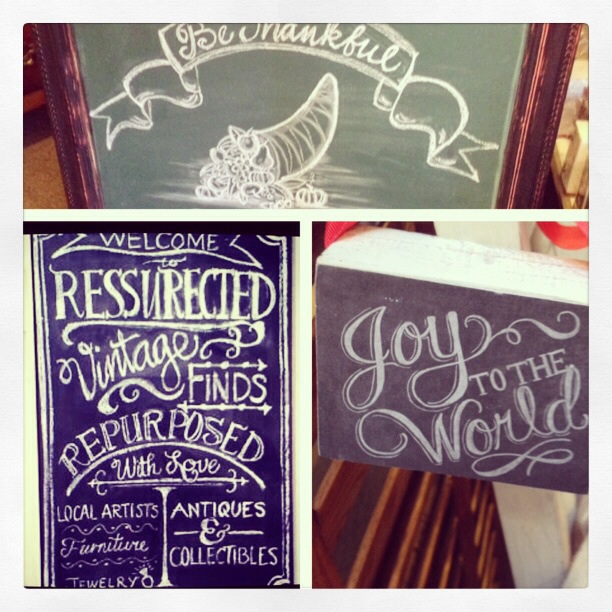 Be Thankful
WELCOME
to
RESSURECTED
Vintage
FINDS
REPURPOSED
With Love
LOCAL ARTISTS
Furniture
JEWELRY
ANTIQUES
&
COLLECTIBLES
Joy
TO THE
World